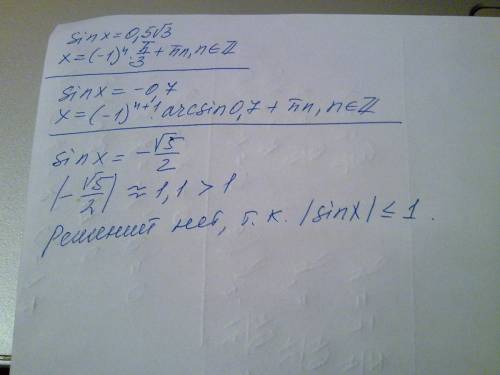 sinx = 0,5√3
x = (-1)ⁿ · π/3 + πn, n∈ℤ
sinx = -0,7
x = (-1)ⁿ⁺¹ · arcsin0,7 + πn, n∈ℤ
sinx = -√5/2
|-√5/2| ≈ 1,1 > 1
Решений нет, т.к. |sinx| ≤ 1.